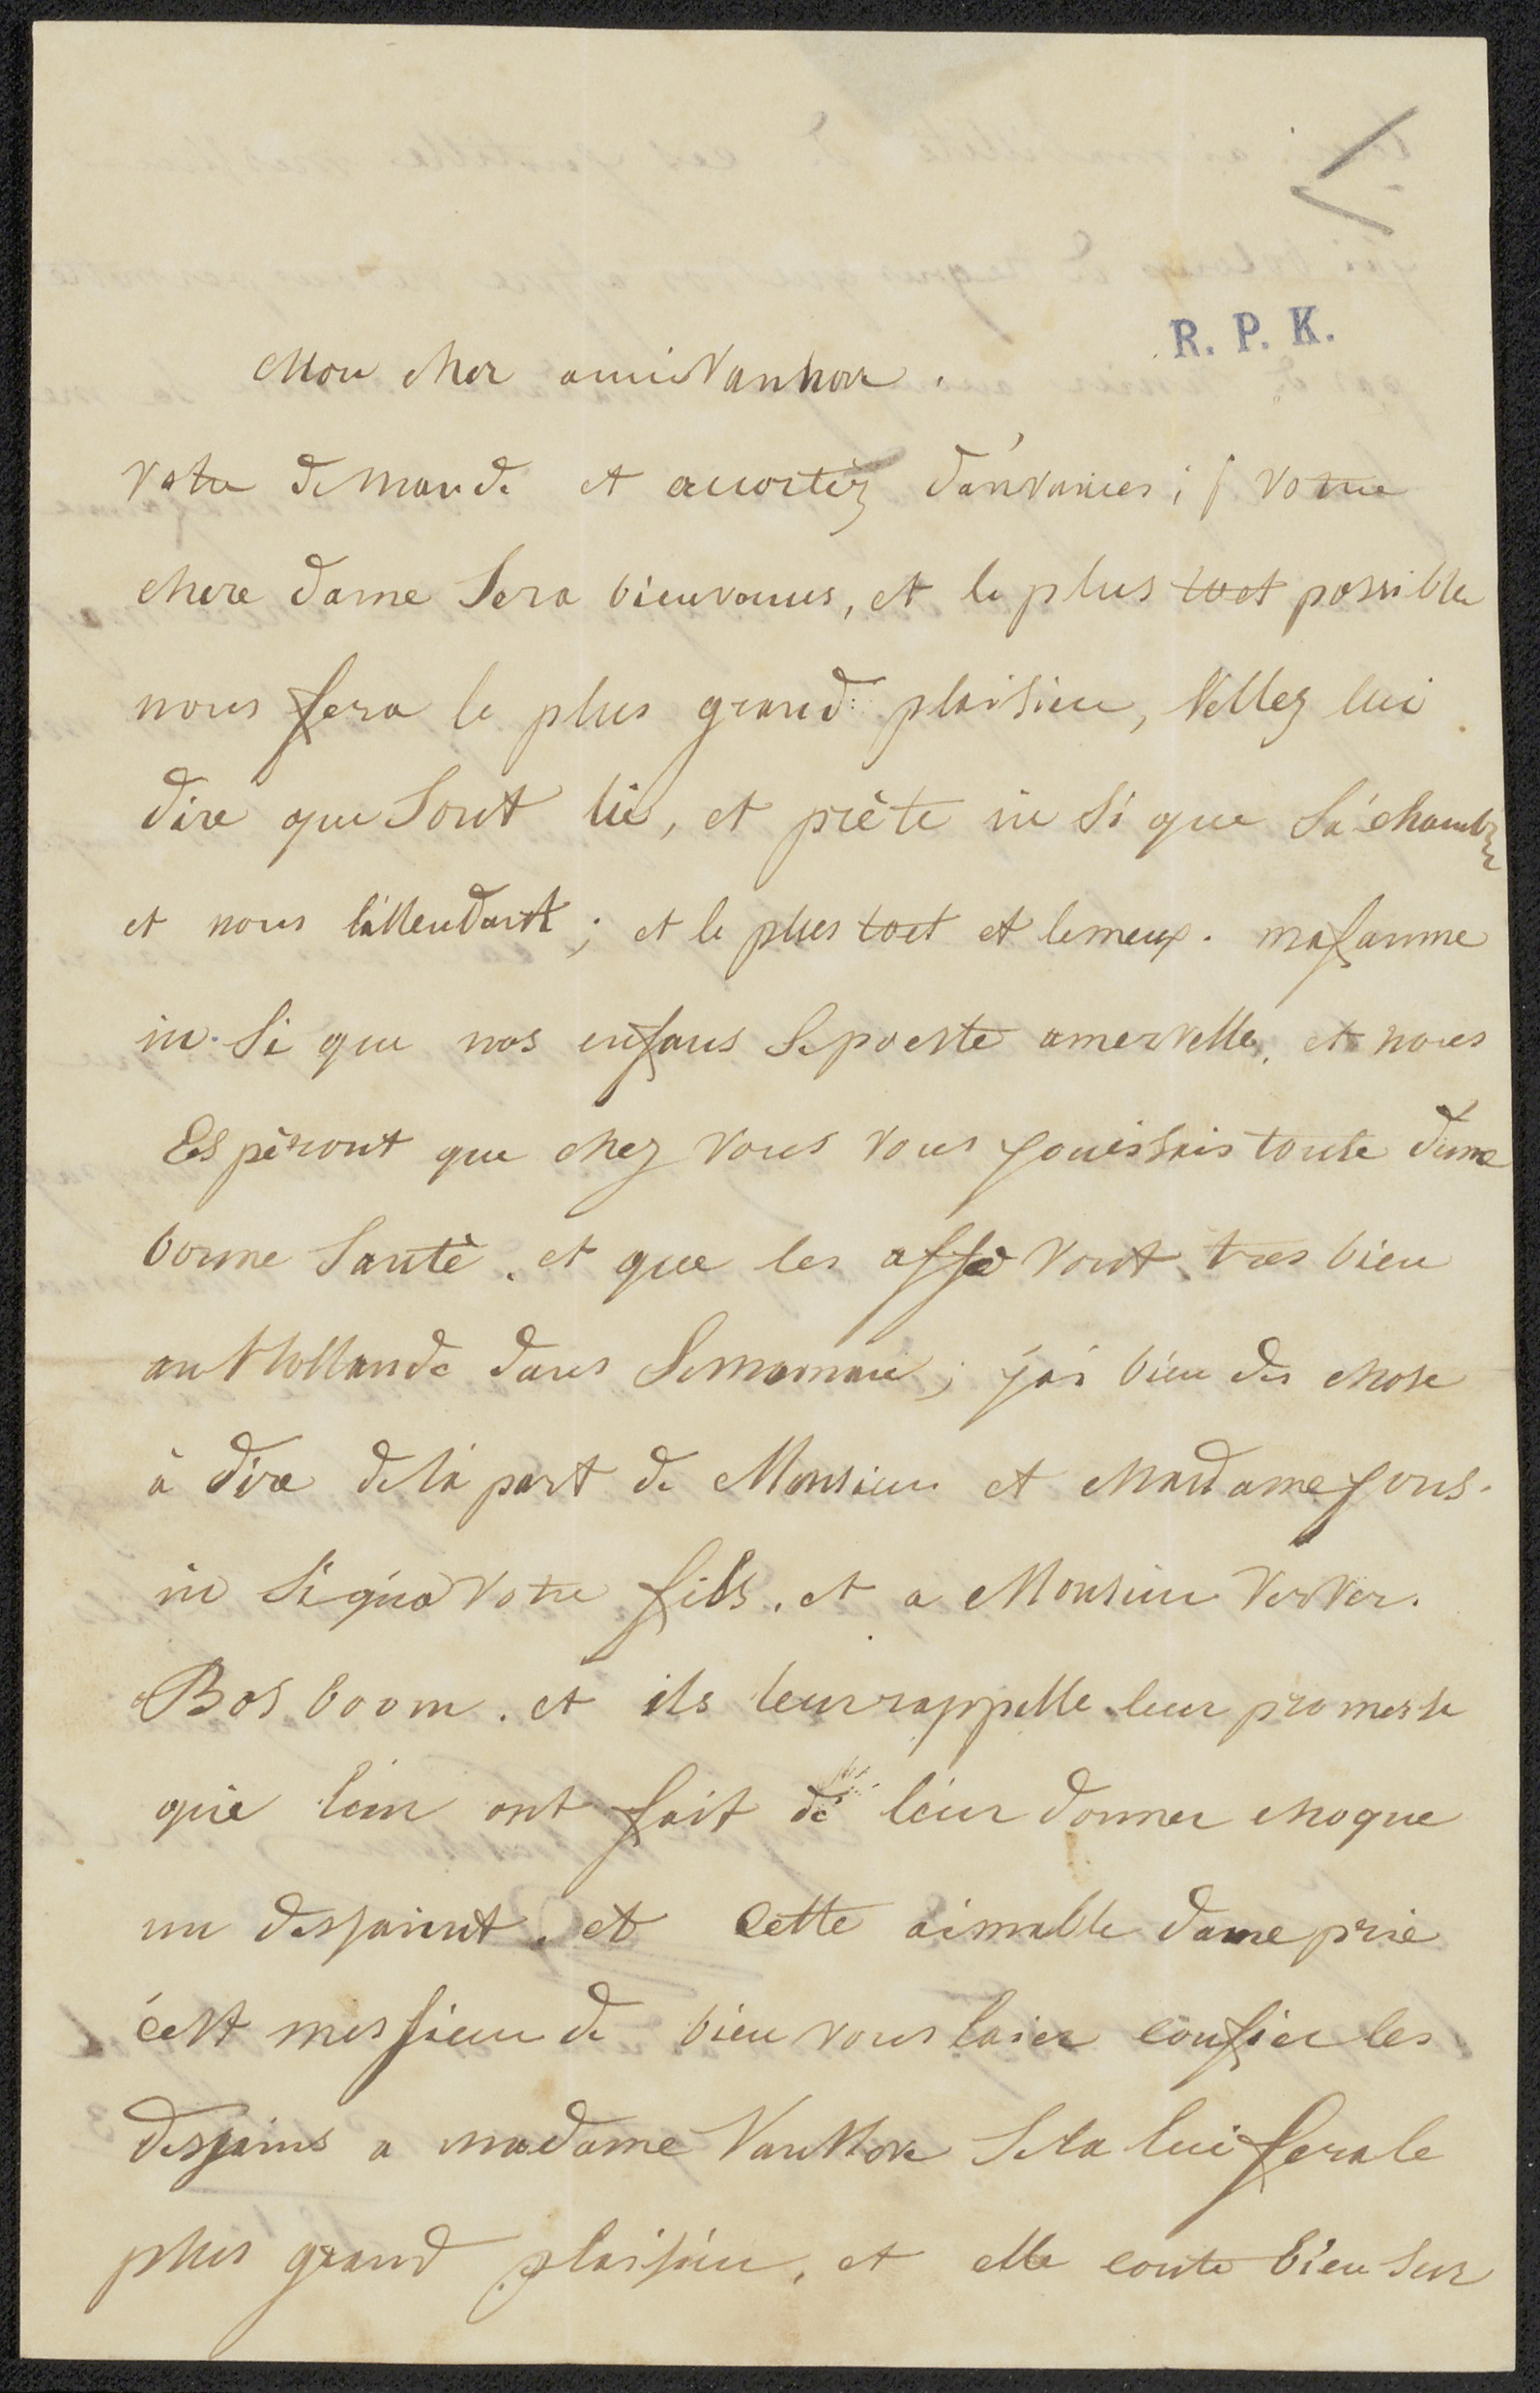 R. P. K.
Mon cher ami Vanhove.
votre demande et accortéz d'anvances; votre
chere dame Sera bienvenus, et le plus toct possible
nous fera le plus grand plaisieur, Vellez lui
dire que Sont lié, et prète in Si que Sá chambre
et nous l'attendont; et le plus toct et lemeux. mafamme
in Si que nos enfans Seporte amervelle, et nous
Espèront que chez vous vous jouissais toute d'une
bonne Santè. et que les affè vont tres bien
an Hollande dans Semomane; j'ai bien des chose
à dire de lá part de Monsieur et Madame jons.
in Si qu'a votre fils. et a Monsieur Verver.
Bosboom. et ils leur rappelle leur promesse
que leur ont fait de leur donner chaque
un dessaint. et cette aimable dame prie
cest messieur de bien vous laier confier les
dessains a madame VanHove Sela lui fera le
plus grand plaisieur, et elle conte bien Sur